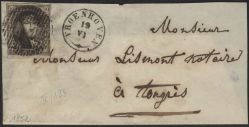 VROENHOVEN
19
VI
Monsieur
Monsieur Lismont notaire
à Tongres
1852